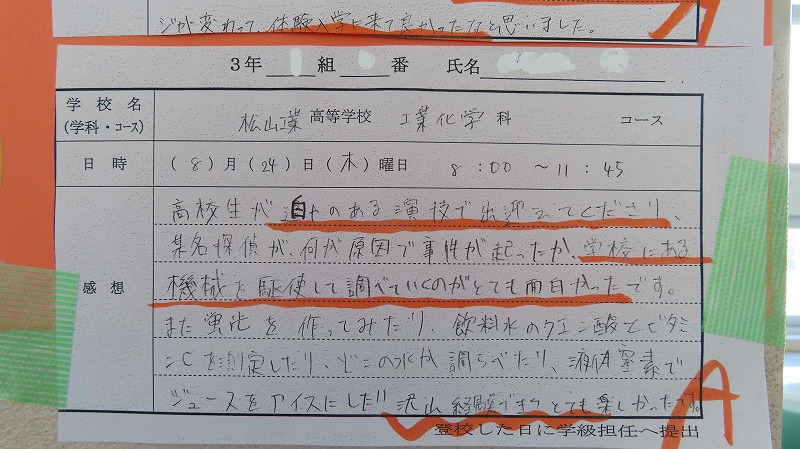 ジが変わって、体験入学に来て良かったなと思いました。
3年 組 番 氏名
学校名 松山工業 高等学校 工業化学 科 コース
(学科・コース)
日時 (8)月(24)日(木)曜日 8:00 ～11:45
高校生が のある演技で出迎えてくださり、
某名探偵が、何が原因で事件が起ったか、学校にある
感想 機械を駆使して調べていくのがとても面白かったです。
また蛍光 を作ってみたり、飲料水のクエン酸とビタミ
ンCを測定したり、どこの水か調らべたり、液体窒素で
ジュースをアイスにしたり 沢山経験できてとても楽しかったです。
登校した日に学級担任へ提出
A
A